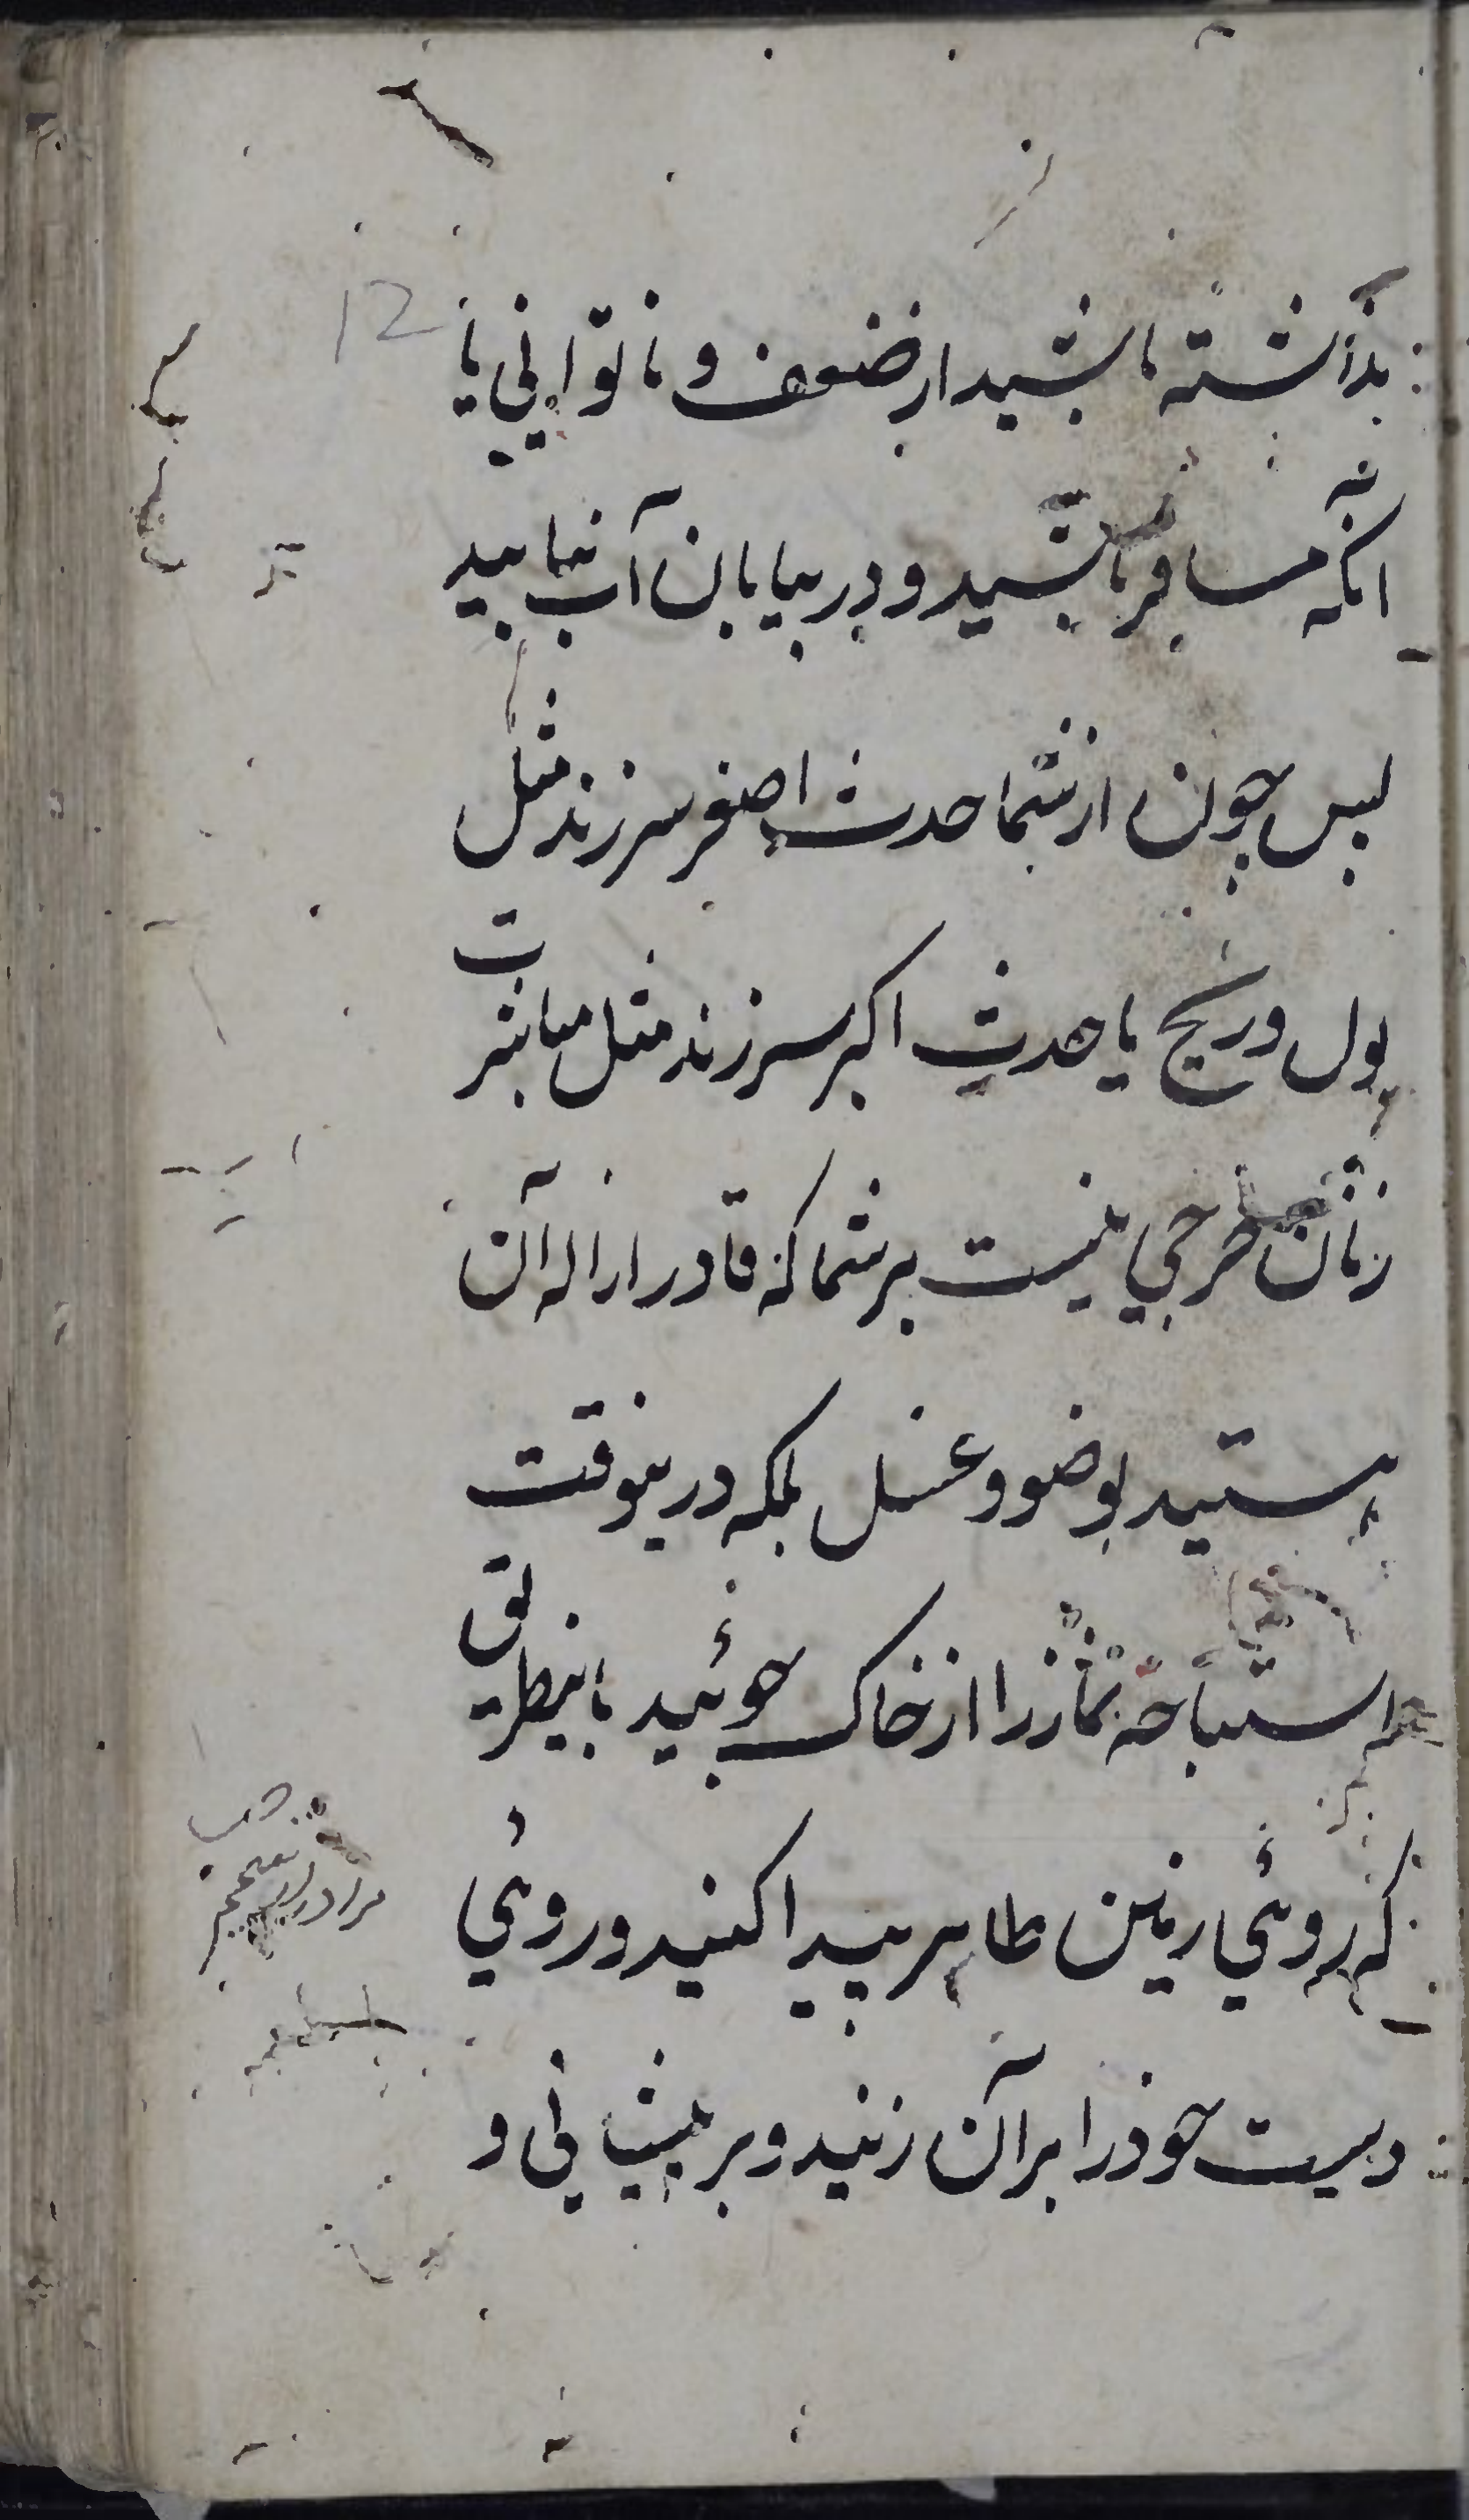 12
بذاشته باشید از ضعف و ناتوانی یا
انکه مسافر باشید و در بیابان آب نیابید
پس چون از شما حدث اصغر سر زند مثل
بول و ریح یا حدث اکبر سر زند مثل مباشرت
زنان حرجی نیست بر شما که قادر ازاله آن
هستید بوضو و غسل بلکه درینوقت
استباحه نماز را از خاک جوئید باینطریق
که روئی زمین طاهر پیدا کنید و روئی
دست خود را بر آن زنید و بر پیشانی و